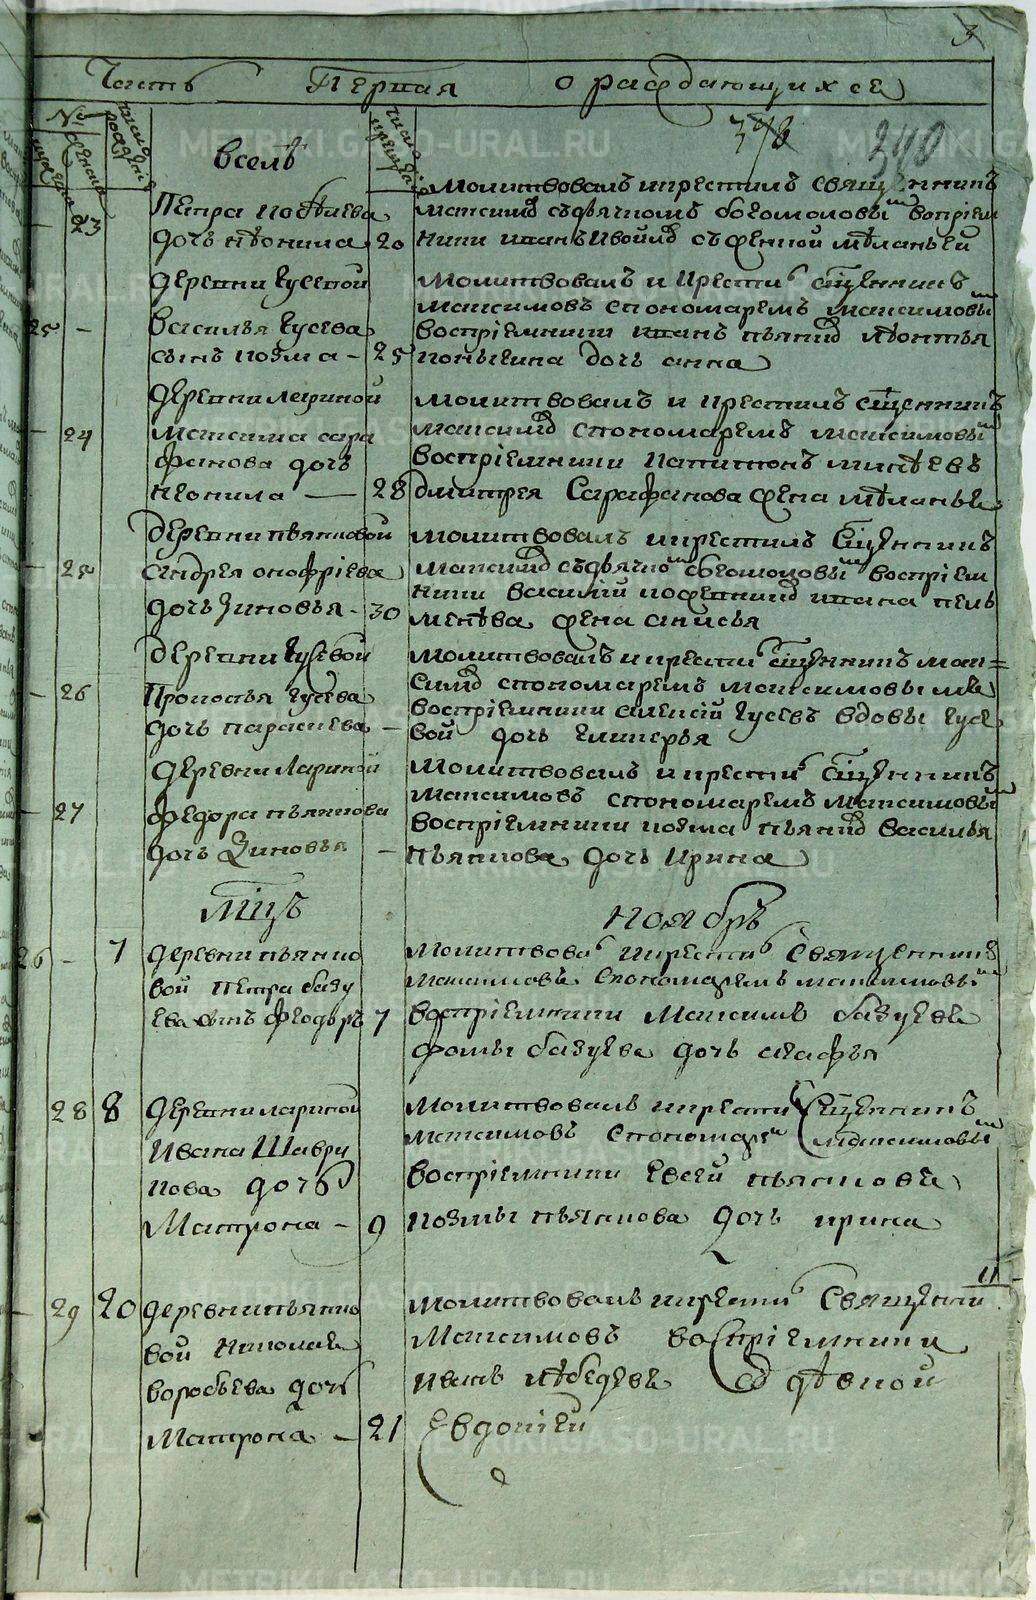 Часть Первая о раждающихся
378
240
№
Числа рождені
мужеска
женска
Числа крещені
в селѣ
23
Петра
дочь неонила 20
молитвовалъ и крестилъ священникъ
максимовъ съ дьячкомъ богомоловымъ воспріем
ники иванъ съ женкой меланьей
25
деревни гусевой
Василья гусева
сынъ козма 25
молитвовалъ и крестилъ священникъ
максимовъ с пономаремъ максимовым
воспріемники иванъ пьянковъ леонтья
дочь анна
24
деревни лариной
максима сара
фанова дочь
неонила 28
молитвовалъ и крестилъ священникъ
максимовъ с пономаремъ максимовым
воспріемники капитонъ
дмитрея Сарафанова жена меланья
25
деревни пьянковой
андрея онофріева
дочь зиновья 30
молитвовалъ и крестилъ священникъ
максимовъ съ дьячкомъ богомоловым воспріем
ники василій ивана пель
менева жена анисья
26
деревни гусевой
Прокопья гусева
дочь параскева
молитвовалъ и крестилъ священникъ мак=
симовъ с пономаремъ максимовымъ
воспріемники алексій гусевъ вдовы гусе
вой дочь гликерья
27
деревни лариной
федора пьянкова
дочь Зиновья
молитвовалъ и крестил священникъ
максимовъ с пономаремъ максимовым
воспріемники козма пьянковъ василья
пьянкова дочь ирина
мцъ ноябрь
26 7
деревни пьянко
вой петра базу
ева сынъ феодоръ 7
молитвовал и крестил священникъ
максимовъ с пономаремъ максимовым
воспріемники максимъ базуевъ
фомы базуева дочь агафья
28 8
деревни лариной
ивана Шавру
кова дочь
Матрона 9
молитвовалъ и крестил священникъ
максимовъ с пономарем максимовым
воспріемники евсей пьянковъ
козмы пьянкова дочь ирина
29 20
деревни пьянко
вой николая
воробьева дочь
Матрона 21
молитвовалъ и крестил священник
максимовъ воспріемники
иванъ лебедевъ с девкой
Евдокіей
METRIKI.GASO-URAL.RU